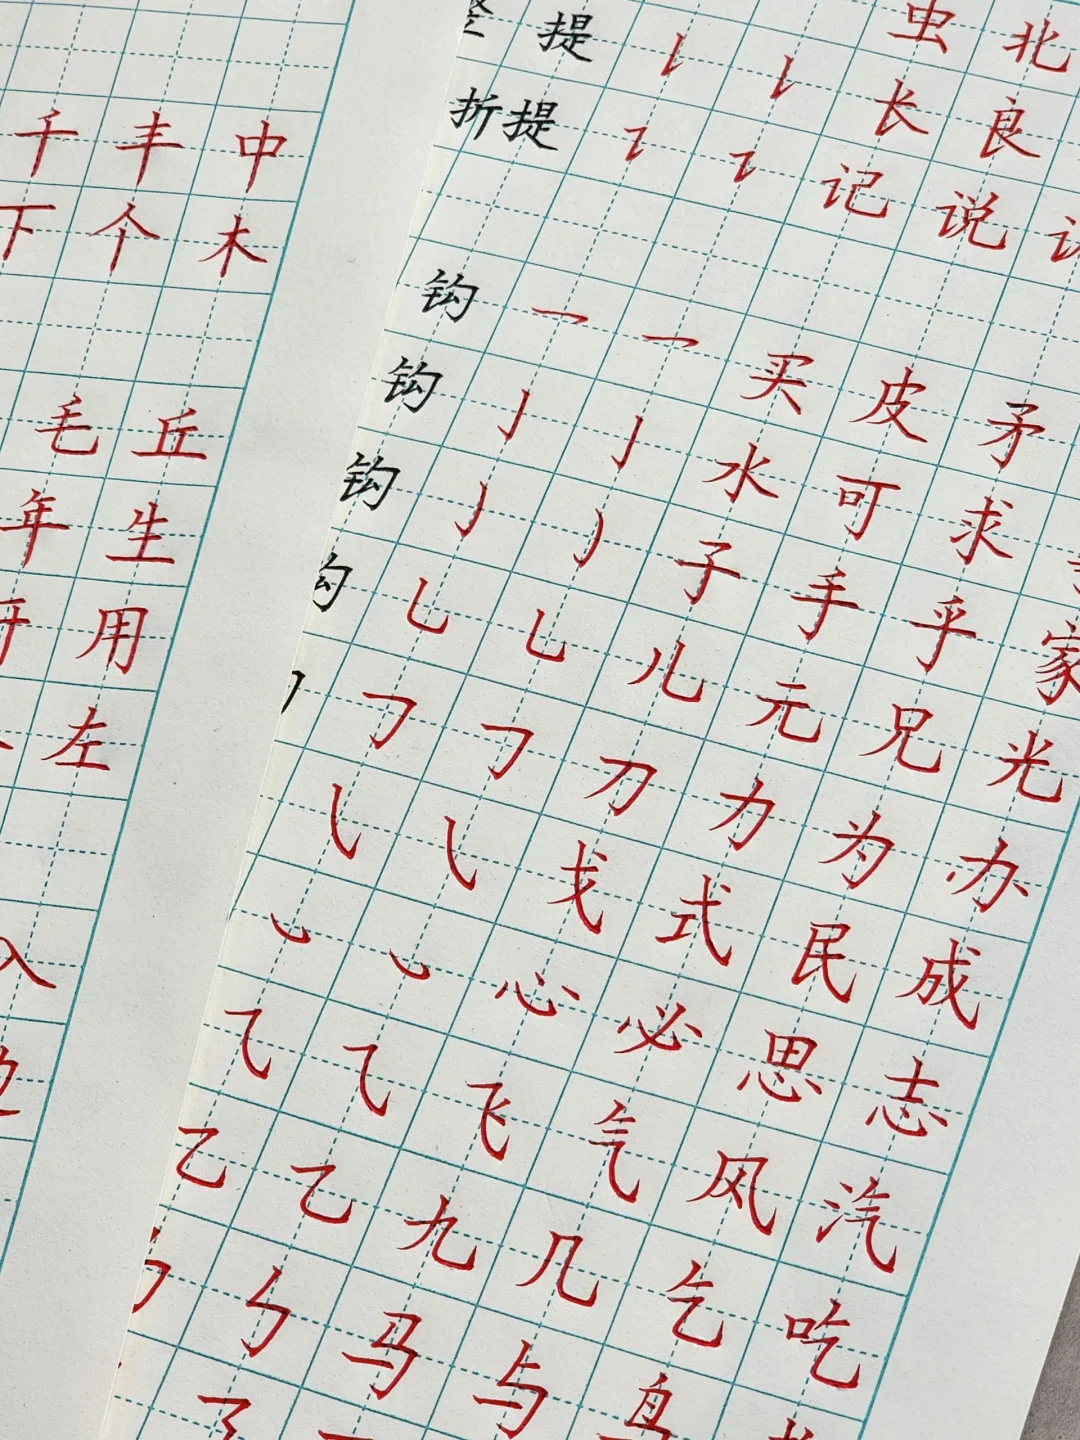 千 丰 中
下 个 木
毛 丘
年 生
用
左
入
提 虫 北
折提 长 良
记 说
钩 买 皮 矛
钩 水 可 求
钩 子 手 乎 家
钩 乚 乚 儿 元 兄 光
𠃌 𠃌 刀 力 为 办
㇂ ㇂ 戈 式 民 成
㇃ ㇃ 心 必 思 志
⺄ ⺄ 飞 气 风 汽
乙 乙 九 几 乞 吃
㇉ 马 与